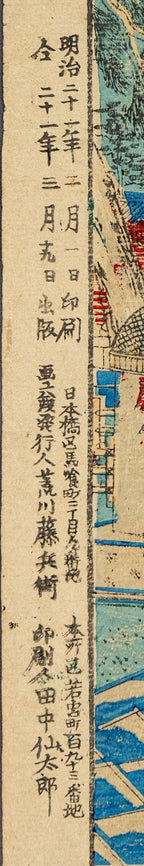 明治二十一年 月一日印刷
仝 二十一年 月 九日出版
日本橋区馬喰町三丁目 番地
画工兼発行人荒川藤兵衛
本所区若宮町百九十三番地
印刷者田中仙太郎